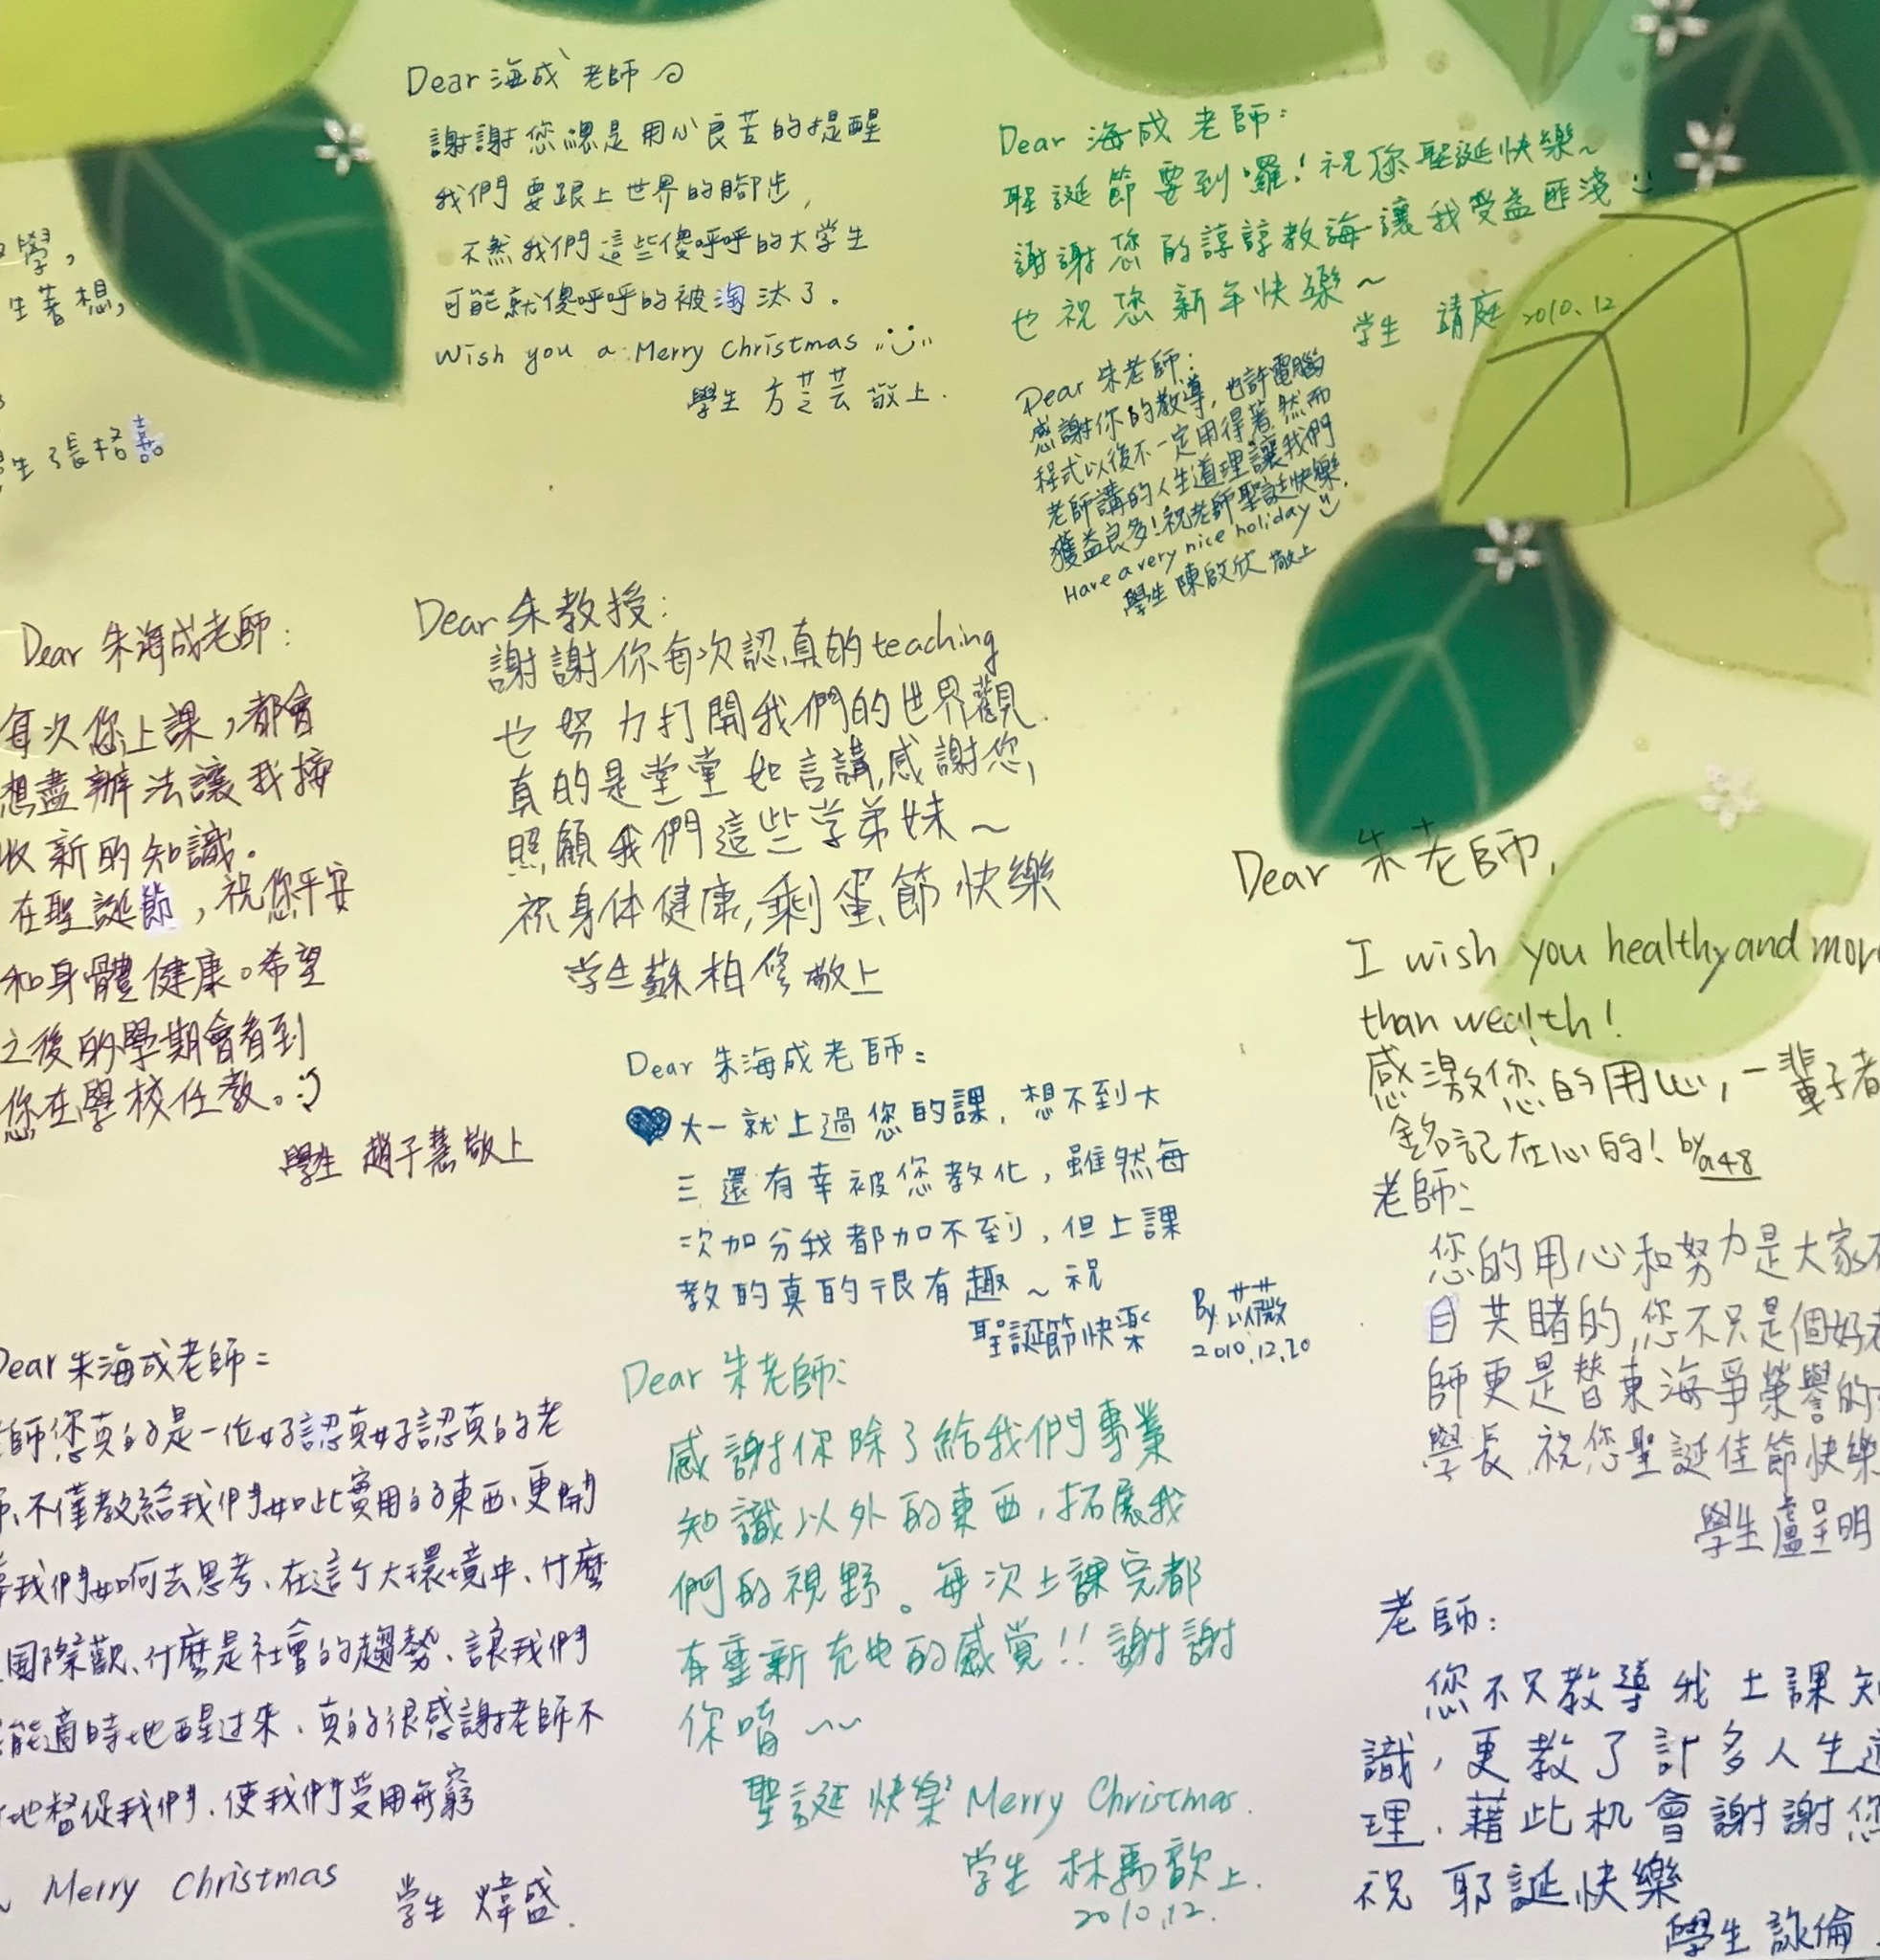 學，
生著想，
生 張格嘉
Dear 海成 老師
謝謝您總是用心良苦的提醒
我們要跟上世界的腳步，
不然我們這些傻呼呼的大学生
可能就傻呼呼的被淘汰了。
Wish you a Merry Christmas
學生 方芝芸 敬上.
Dear 海成 老師：
聖誕節要到囉！祝您聖誕快樂~
謝謝您的諄諄教誨讓我受益匪淺 :)
也祝您新年快樂~
学生 靖庭 2010.12.
Dear 朱老師：
感謝你的教導，也許電腦
程式以後不一定用得著然而
老師講的人生道理讓我們
獲益良多！祝老師聖誕快樂.
Have a very nice holiday
學生 陳啟欣 敬上
Dear 朱海成老師：
每次您上課，都會
想盡辦法讓我接
收新的知識。
在聖誕節，祝您平安
和身體健康。希望
之後的學期會看到
您在學校任教。:)
學生 趙子慧敬上
Dear 朱教授：
謝謝你每次認真的teaching
也努力打開我們的世界觀.
真的是堂堂如言講,感謝您,
照顧我們這些学弟妹~
祝身体健康,剩蛋節快樂
学生蘇柏修敬上
Dear 朱海成老師：
大一就上過您的課，想不到大
三還有幸被您教化，雖然每
次加分我都加不到，但上課
教的真的很有趣~祝
聖誕節快楽 By 以薇
2010.12.20
Dear 朱老師,
I wish you healthy and mor
than wealth!
感激您的用心，一輩子都
銘記在心的！by a48
老師：
您的用心和努力是大家有
目共睹的,您不只是個好老
師更是替東海爭榮譽的
學長,祝您聖誕佳節快樂
學生盧呈明
Dear 朱海成老師：
師您真的是一位好認真好認真的老
師、不僅教給我們如此實用的東西、更開
導我們如何去思考、在這个大環境中、什麼
国際觀、什麼是社會的趨勢、讓我們
能適時地醒过来、真的很感謝老師不
地督促我們、使我們受用無窮
Merry Christmas
学生 煒盛.
Dear 朱老師：
感謝你除了給我們專業
知識以外的東西，拓展我
們的視野。每次上課完都
有重新充电的感覚!!謝謝
你唷~~
聖誕快樂 Merry Christmas.
学生 林禹歆上.
2010.12.
老師：
您不只教導我上課知
識，更教了許多人生道
理，藉此机會謝謝您
祝 耶誕快樂
學生 詠倫